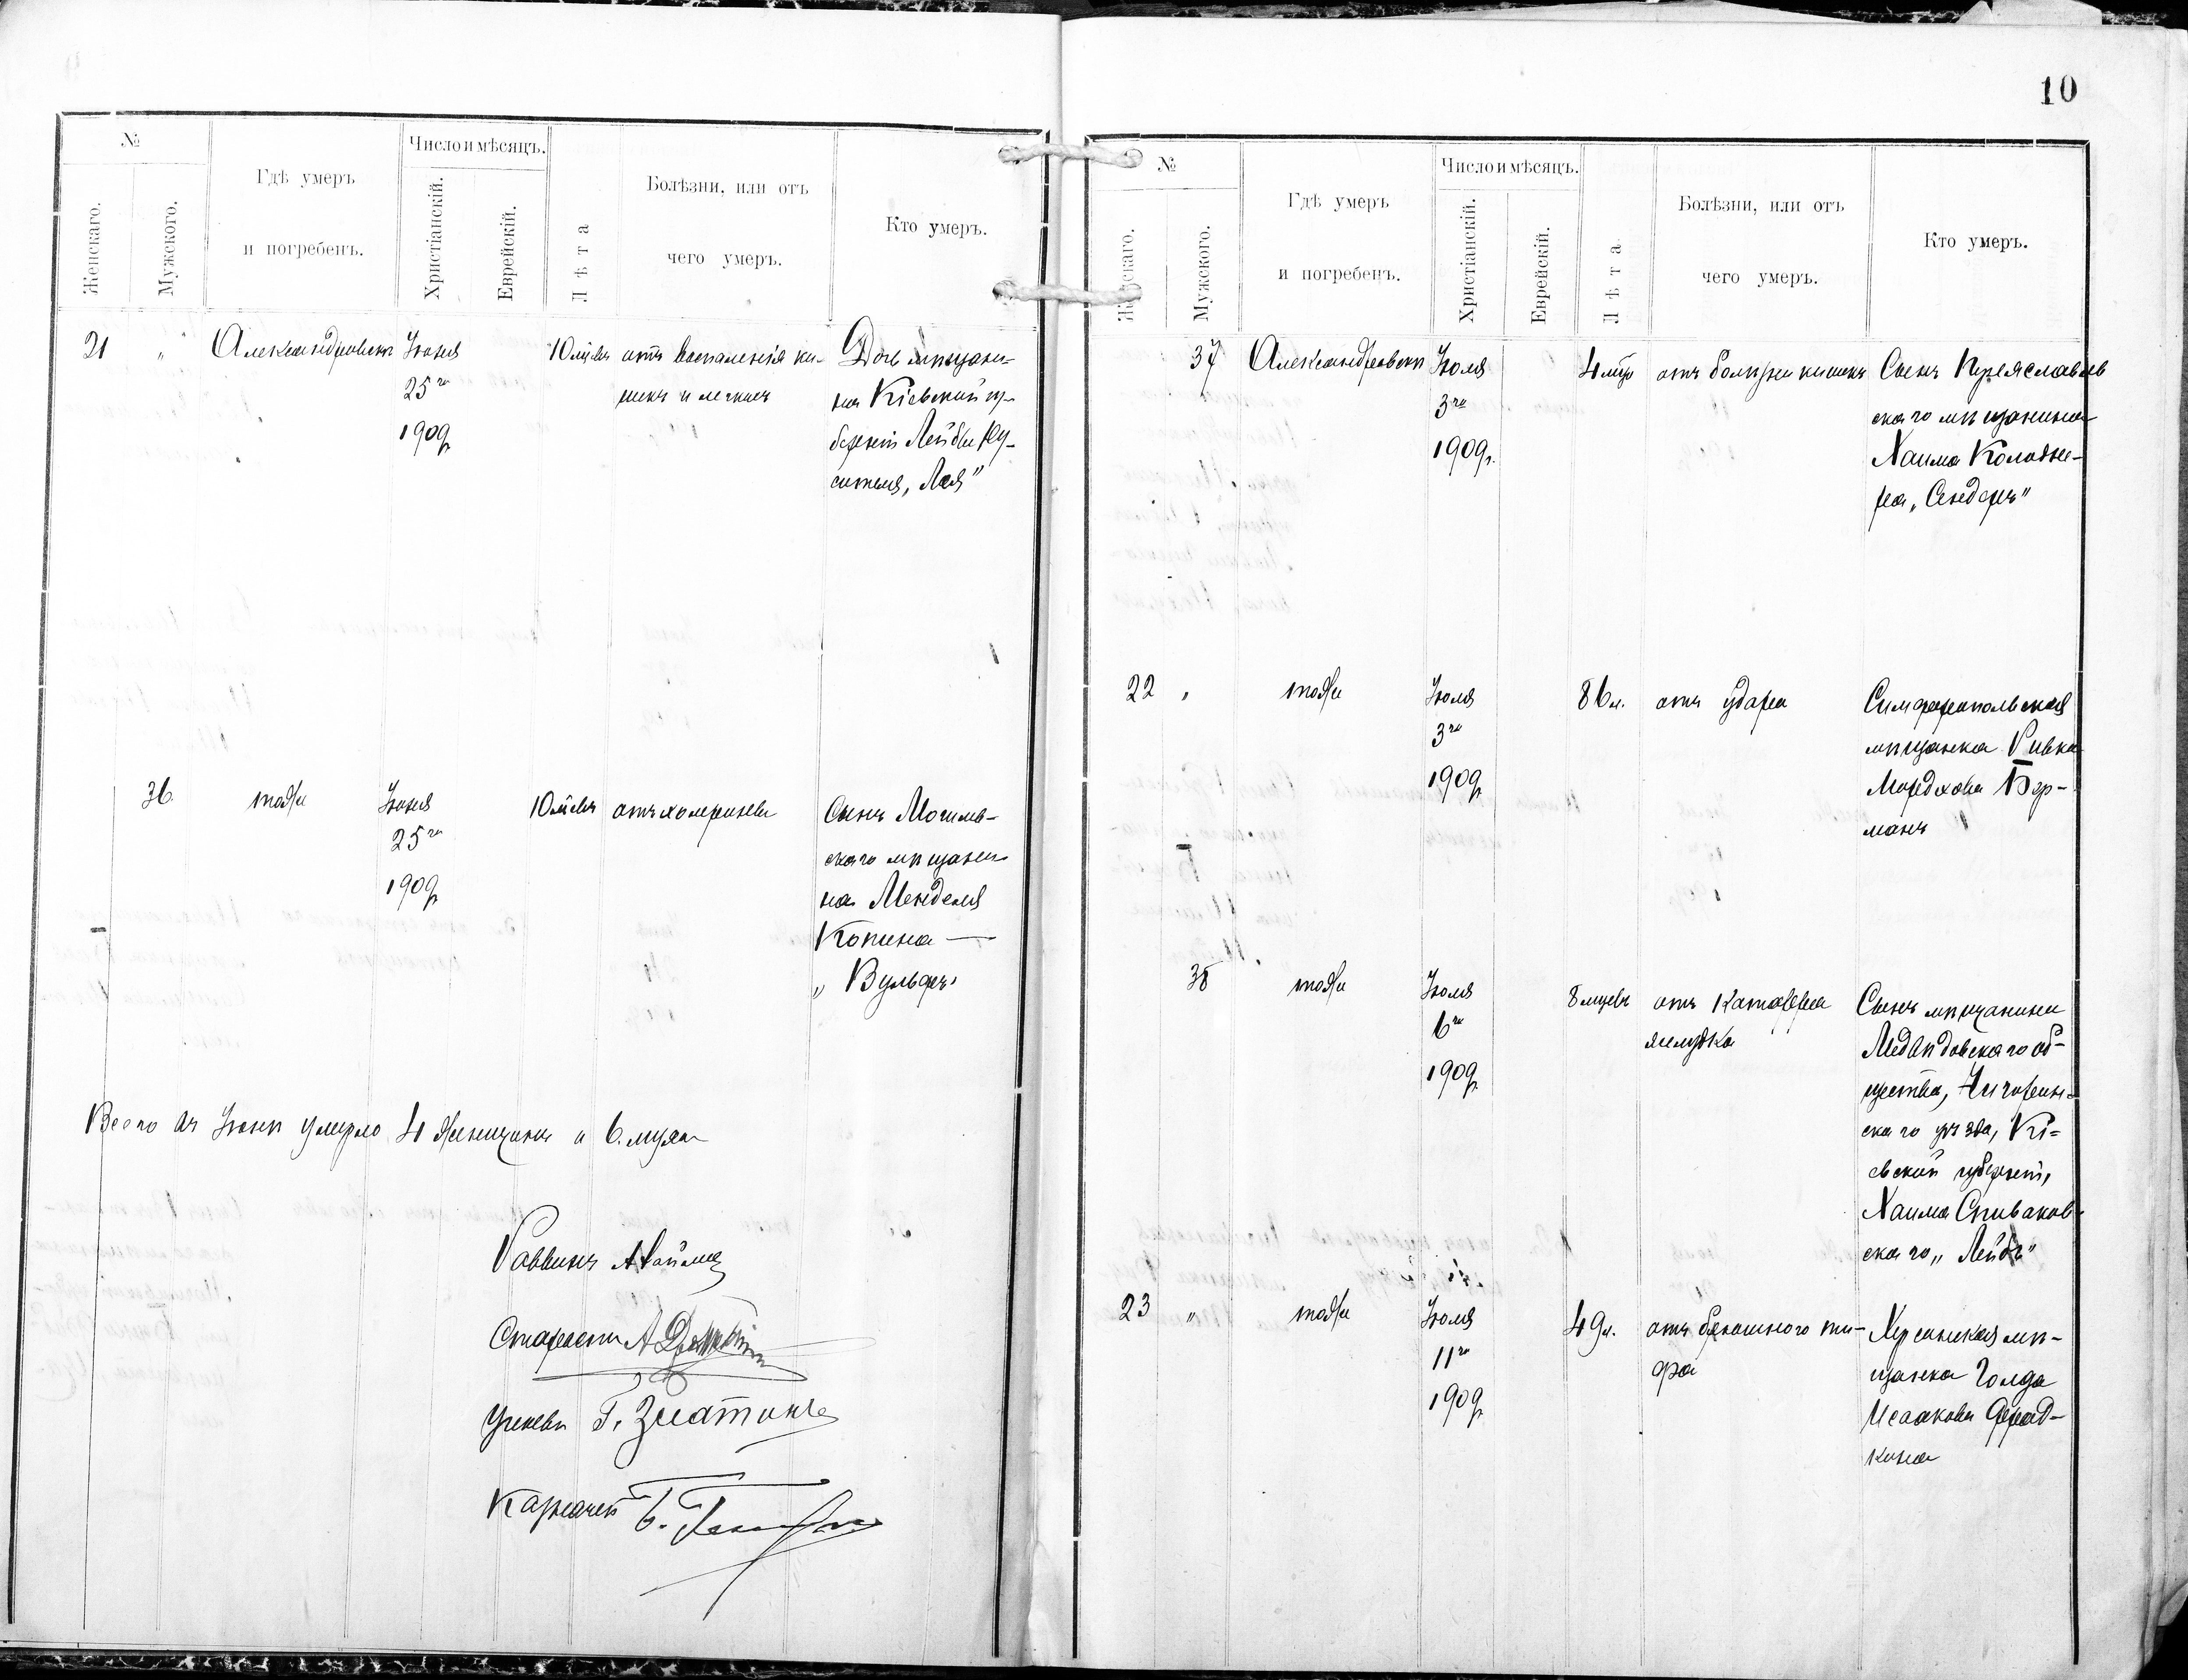 №
Женскаго.
Мужского.
Гдѣ умеръ
и погребенъ.
Число и мѣсяцъ.
Христіанскій.
Еврейскій.
Лѣта
Болѣзни, или отъ
чего умеръ.
Кто умеръ.
21 „ Александровскъ Іюня 10 мѣсяц отъ воспаленія ки-
шекъ и легкихъ
25го
1909г
Дочь мѣщани-
на Кіевской гу-
берніи Лейбы Ку-
сителя, Лея"
36 тоже Іюня 10 мѣсяц отъ холерины
25го
1909г
Сынъ Могилев-
скаго мѣщани-
на Менделя
Копина —
„Вульфъ"
Всего въ Іюнѣ умерло 4 женщины и 6 муж
Раввинъ
Староста А
Ученый Г. Златокъ
Казначей Б.
10
№
Женскаго.
Мужского.
Гдѣ умеръ
и погребенъ.
Число и мѣсяцъ.
Христіанскій.
Еврейскій.
Лѣта
Болѣзни, или отъ
чего умеръ.
Кто умеръ.
37 Александровскъ Іюля 4 мѣс отъ болѣзни кишекъ
3го
1909г.
Сынъ Переяславль
скаго мѣщанина
Хаима Коломѣе-
ра „Сендеръ"
22 „ тоже Іюля 86 л. отъ удара
3го
1909г
Симферопольская
мѣщанка Ривка
Мордхова Бер-
манъ
38 тоже Іюля 8 мѣсяц отъ катарра
желудка
6го
1909г
Сынъ мѣщанина
Медвѣдовскаго об-
щества, Чигирин-
скаго уѣзда, Кі-
евской губерніи,
Хаима Спиваков-
скаго „Лейбъ"
23 „ тоже Іюля 49 л. отъ брюшного ти-
фа
11го
1909г
Херсонская мѣ-
щанка Голда
Исаакова Фрад-
кина